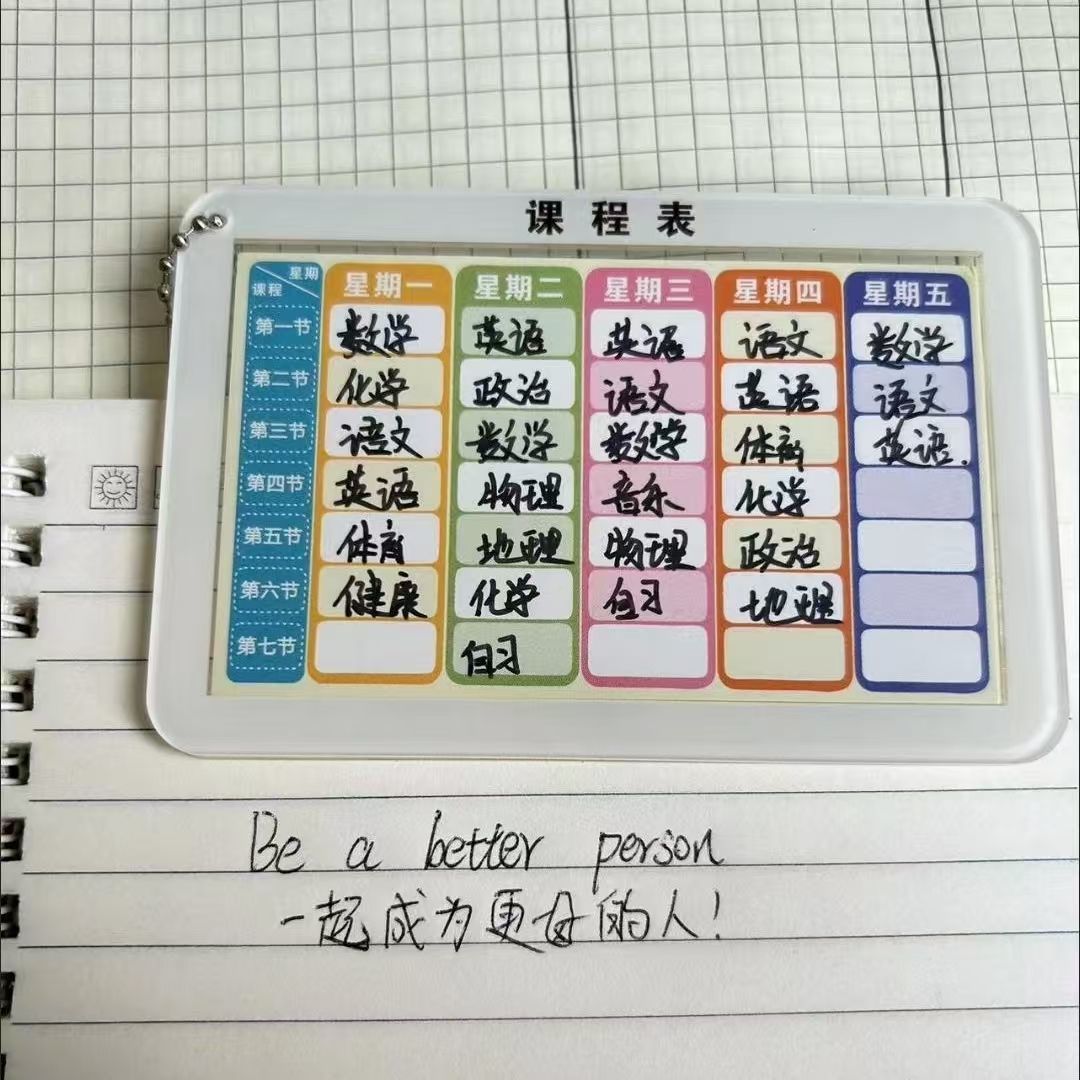 课程表
星期 星期一 星期二 星期三 星期四 星期五
课程
第一节 数学 英语 英语 语文 数学
第二节 化学 政治 语文 英语 语文
第三节 语文 数学 数学 体育 英语.
第四节 英语 物理 音乐 化学
第五节 体育 地理 物理 政治
第六节 健康 化学 自习 地理
第七节 自习
Be a better person
一起成为更好的人!